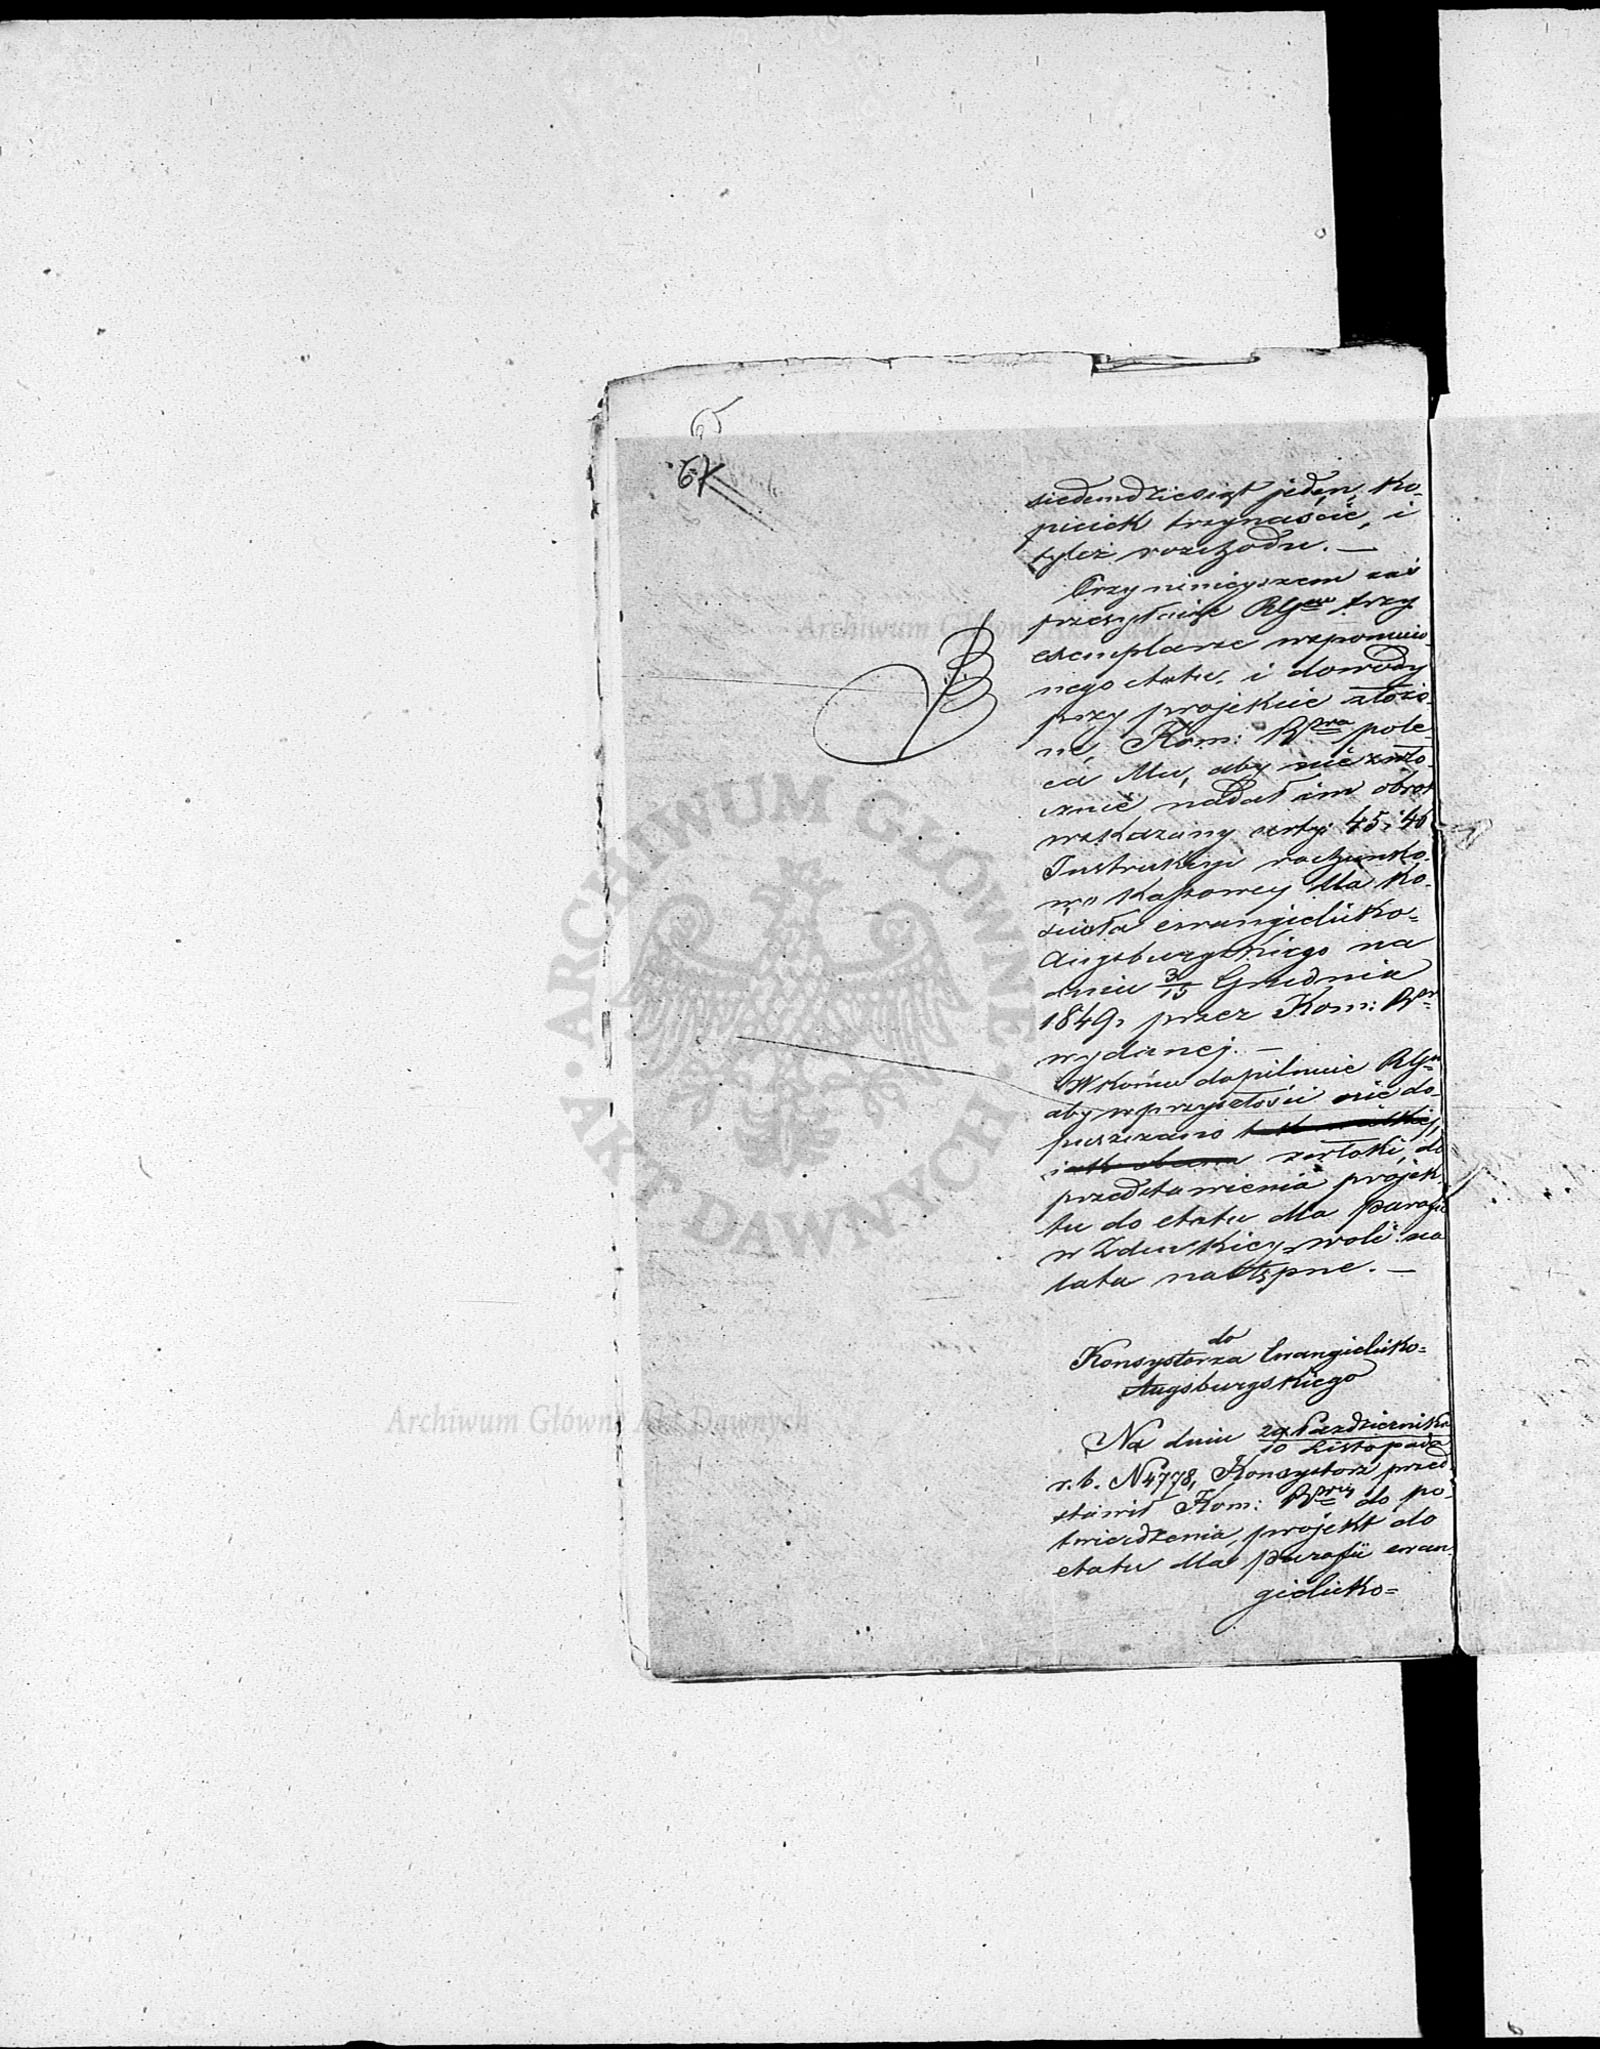 6
6K
siedemdziesiąt jeden, ko-
piciek trzynaście, i
tyleż rozchodu. —
Przy niniejszem zaś
przesyłając RGowi trzy
exemplarze wspomnio-
nego etatu, i dowody
przy projekcie złożo-
ne, Kom: Rpra pole-
ca Mu, aby niezwło-
cznie nadał im obrot
wskazany arty: 45 i 46
Instrukcyi rachunko-
wo Kassowey dla Ko-
ścioła ewangielicko-
Augsburgskiego na
dniu 3/15 Grudnia
1849 r. przez Kom: R
wydanej. —
W końcu dopilnuie RG
aby w przyszłości nie do-
puszczano
zwłoki, do
przedstawienia projek-
tu do etatu dla parafii
w Zduńskiey-woli na
lata następne. —
do
Konsystorza Ewangielicko-
Augsburgskiego
Na dniu 29 Października
10 Listopada
r. b. N 4778, Konsystorz przed-
stawił Kom: Rprzy do po-
twierdzenia, projekt do
etatu dla parafii ewan-
gielicko-
ARCHIWUM GŁÓWNE
AKT DAWNYCH
Archiwum Główne Akt Dawnych
Archiwum Główne Akt Dawnych